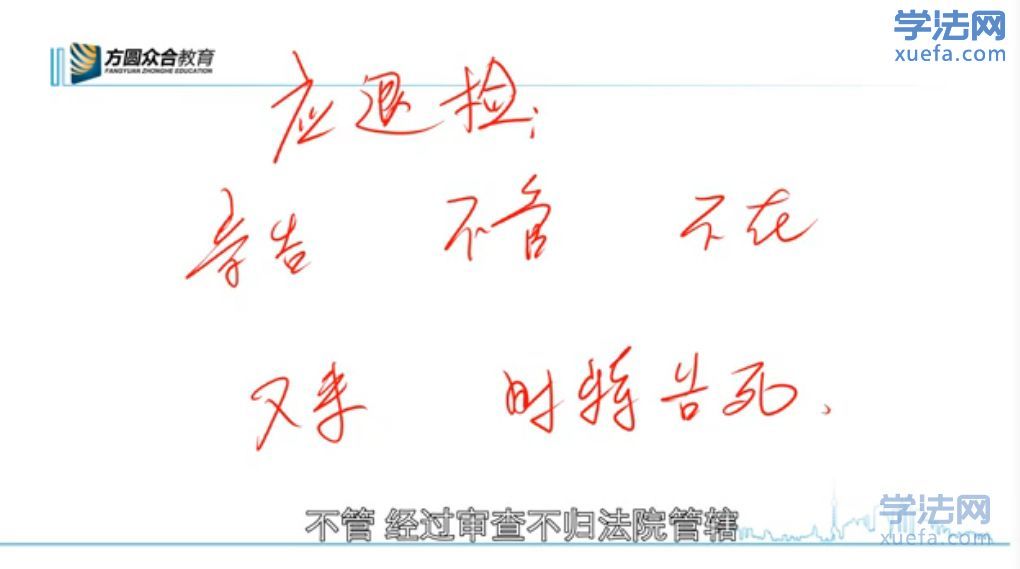 学法网
xuefa.com
方圆众合教育
FANGYUAN ZHONGHE EDUCATION
应退检:
告 不管 不在
又来 时特告死、
不管 经过审查不归法院管辖
学法网
xuefa.com